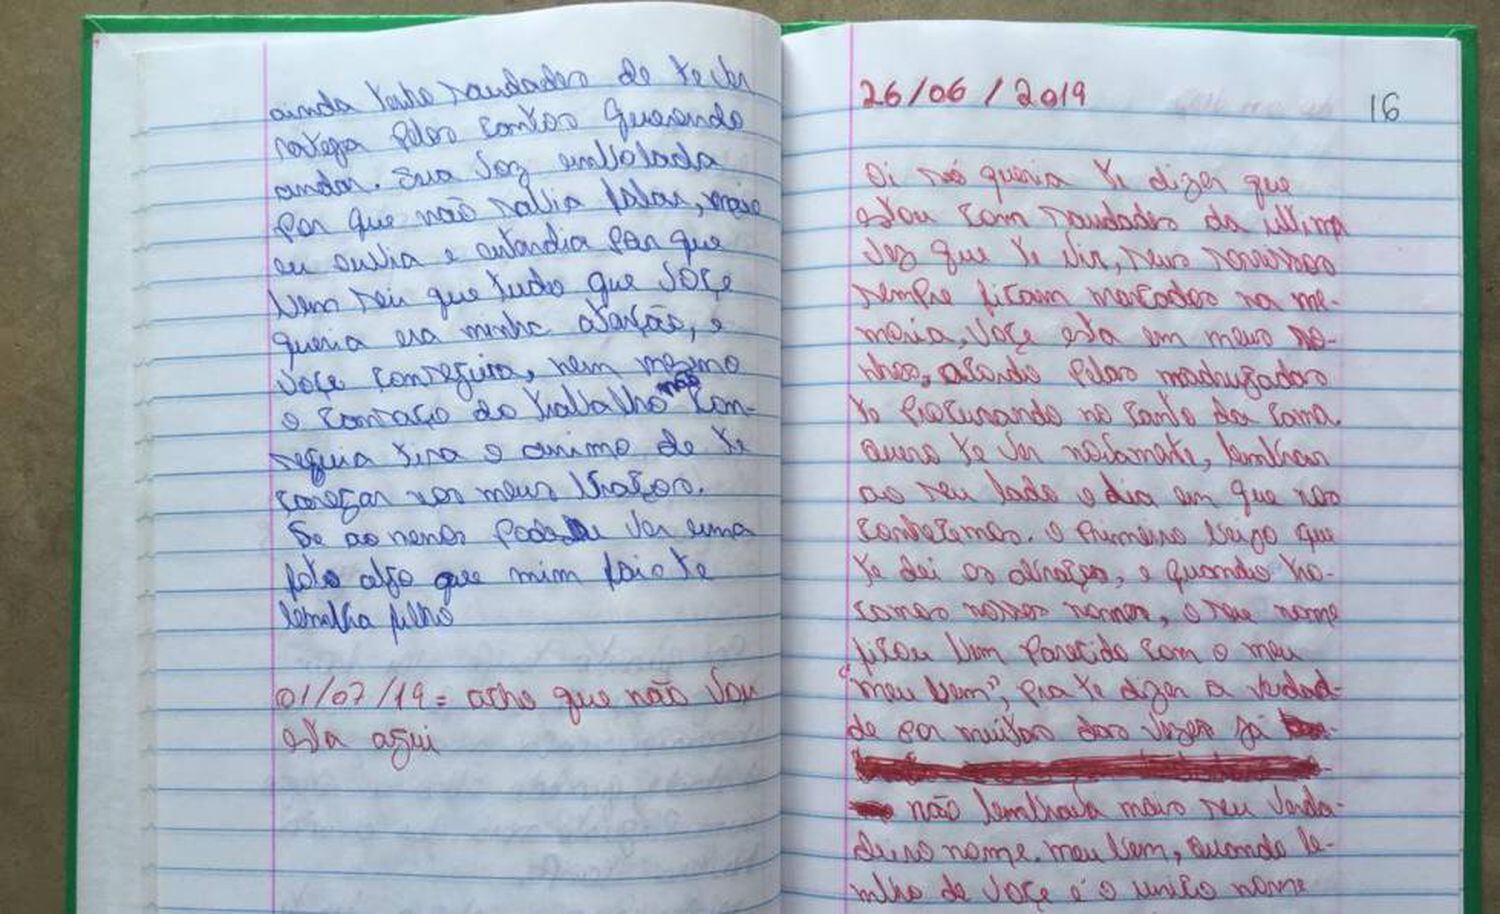 ainda tenho saudades de te ver
pelos cantos querendo
andar. sua voz embolada
por que não sabia falar, mais
eu ouvia e entendia por que
bem sei que tudo que voçe
queria era minha atenção, e
voçe conseguia, nem mesmo
o cansaço do trabalho não con-
seguia tira o animo de te
caregar nos meus braços.
Se ao menos pode ver uma
foto algo que mim faiz te
lembra filho
01/07/19 = acho que não vou
esta aqui
26/06/2019
16
oi só queria te dizer que
estou com saudades da ultima
vez que te vir, seus sorrisos
sempre ficam marcados na me-
moria, voçe esta em meus so-
nhos, acordo pelas madrugadas
te procurando no canto da cama.
quero te ver novamente, lembrar
ao seu lado o dia em que nos
conhecemos. o primeiro beijo que
te dei os abraços, e quando tro-
camos nossos nomes, o seu nome
ficou bem parecido com o meu
"meu bem", pra te dizer a verdad-
de por muitas das vezes já
não lembrava mais seu verda-
deiro nome. meu bem, quando le-
mbro de voçe é o unico nome